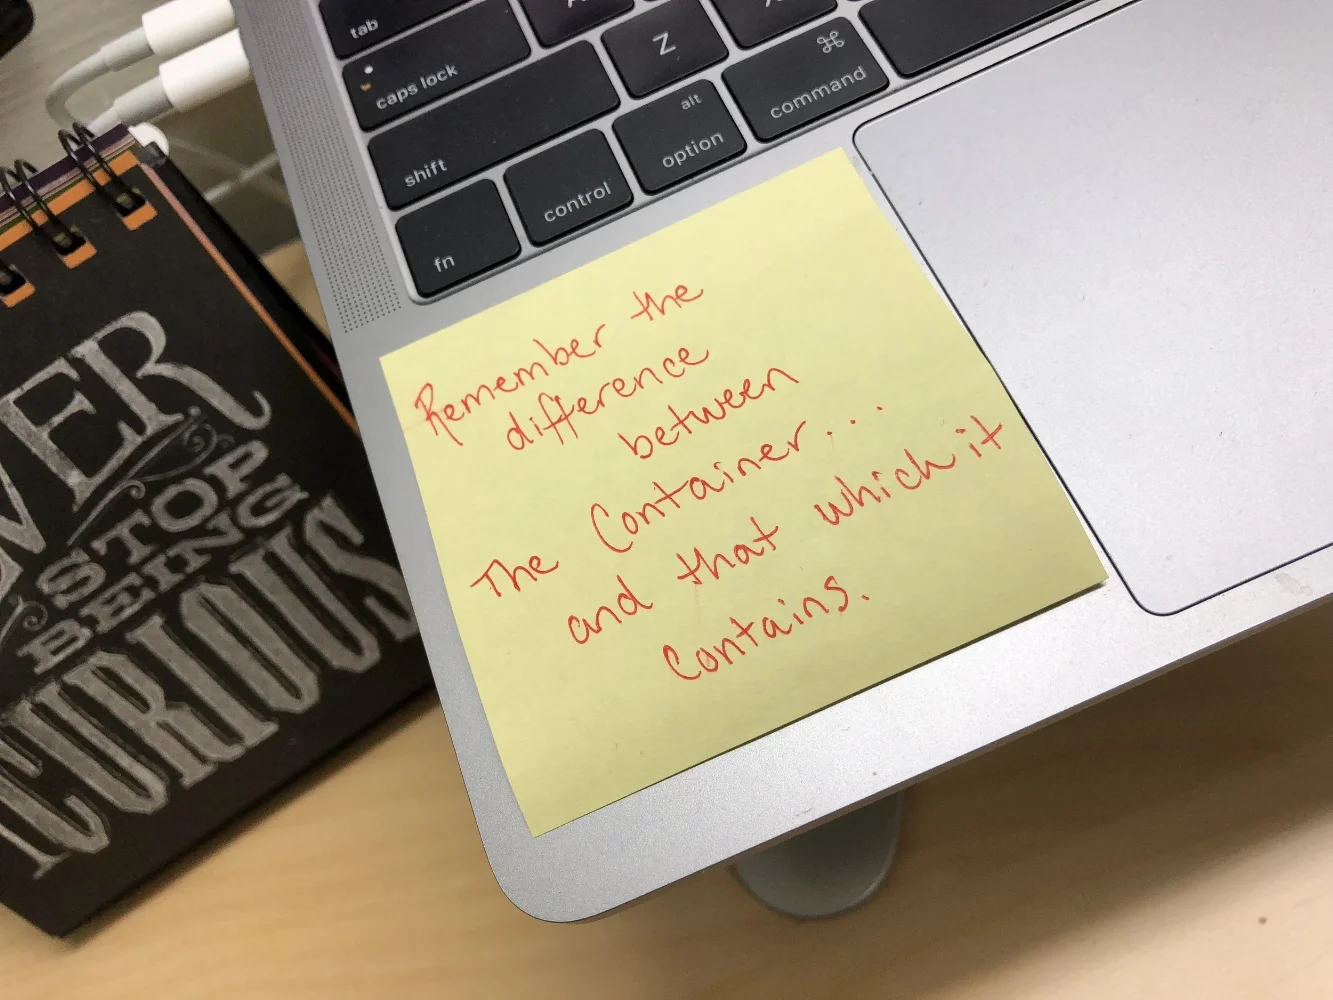 tab
caps lock
shift
fn
control
alt
option
Z
⌘
command
Remember the
difference
between
The Container...
and that which it
Contains.
VER
STOP
BEING
CURIOUS